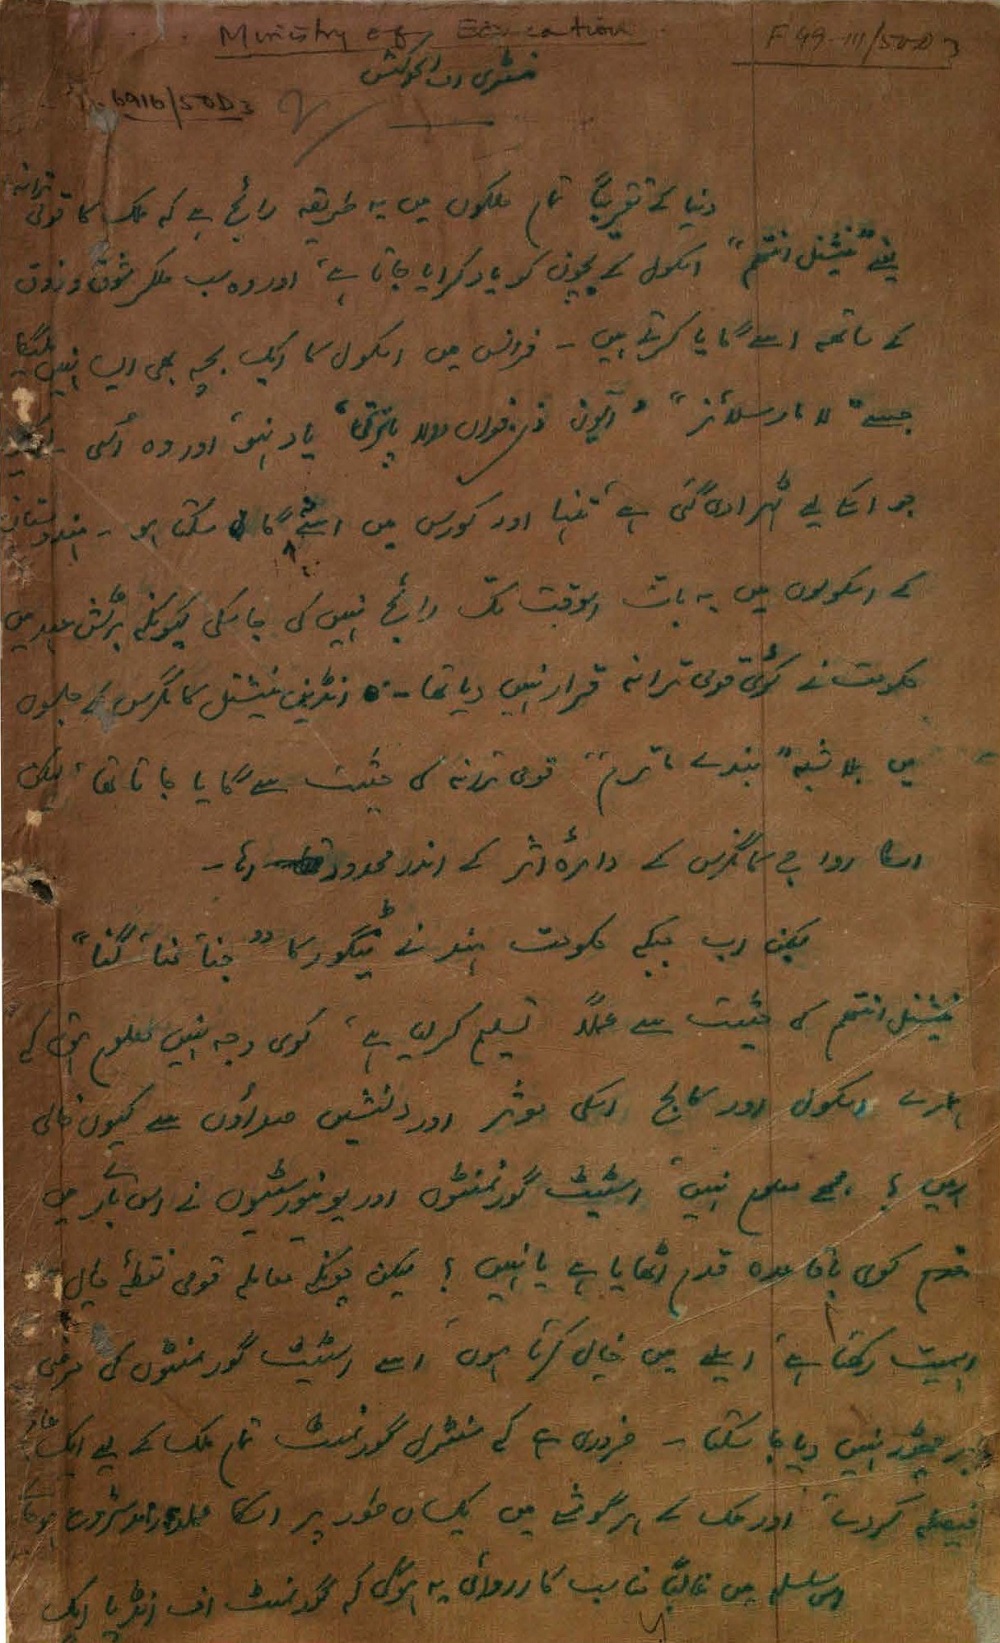 Ministry of Education
F 49-III/50-D3
منسٹری اف ایجوکیشن
6916/50D3
دنیا کے تقریباً تمام ملکوں میں یہ طریقہ رائج ہے کہ ملک کا قومی ترانہ
یعنے "نیشنل انتھم" اسکول کے بچوں کو یاد کرایا جاتا ہے، اور وہ سب ملکر شوق و ذوق
کے ساتھ اسے گایا کرتے ہیں - فرانس میں اسکول کا ایک بچہ بھی ایسا نہیں ملیگا
جسے "لا مارسلائز" یاد نہو، اور وہ اُسکی
جو اسکے لیے ٹہرا دی گئی ہے، تنہا اور کورس میں اسے گا نہ سکتا ہو - ہندوستان
کے اسکولوں میں یہ بات اسوقت تک رائج نہیں کی جا سکی کیونکہ برٹش عہد میں
حکومت نے کوئی قومی ترانہ قرار نہیں دیا تھا - انڈین نیشنل کانگرس کے جلسوں
میں بلا شبہ "بندے ماترم" قومی ترانہ کی حیثیت سے گایا جاتا تھا، لیکن
اسکا رواج کانگرس کے دائرہ اثر کے اندر محدود رہا -
لیکن اب جبکہ حکومت ہند نے ٹیگور کا "جنا منا گنا"
نیشنل انتھم کی حیثیت سے عملاً تسلیم کر لیا ہے، کوئی وجہ نہیں معلوم ہوتی کہ
ہمارے اسکول اور کالج اسکی موثر اور دلنشیں صداؤں سے کیوں خالی
رہیں؟ مجھے معلوم نہیں، اسٹیٹ گورنمنٹوں اور یونیورسٹیوں نے اس بارے میں
کوئی باقاعدہ قدم اٹھایا ہے یا نہیں؟ لیکن چونکہ معاملہ قومی نقطۂ خیال سے
اہمیت رکھتا ہے، اسلیے میں خیال کرتا ہوں، اسے اسٹیٹ گورنمنٹوں کی مرضی
پر چھوڑ نہیں دیا جا سکتا - ضروری ہے کہ سنٹرل گورنمنٹ تمام ملک کے لیے ایک عام
فیصلہ کر دے، اور ملک کے ہر گوشے میں یکساں طور پر اسکا عملدرامد شروع ہو جائے
اس سلسلہ میں غالباً مناسب کارروائی یہ ہوگی کہ گورنمنٹ اف انڈیا ایک